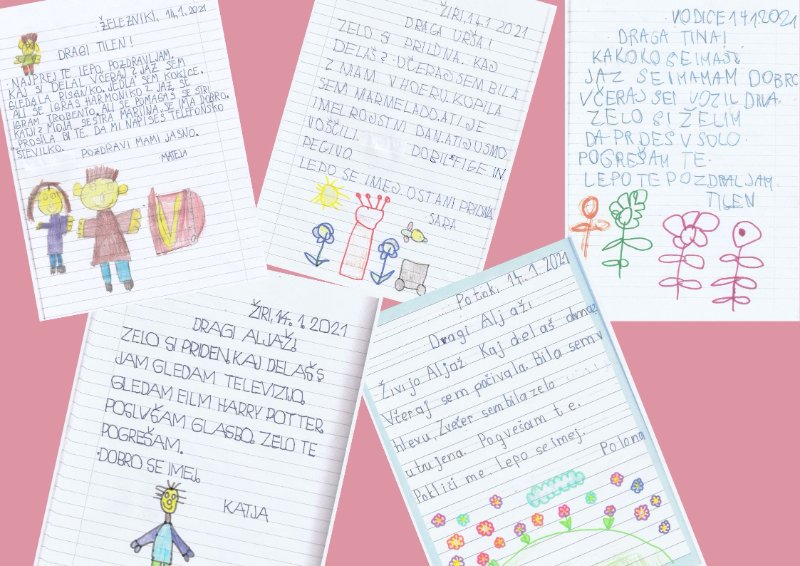 ŽELEZNIKI, 14.1.2021
DRAGI TILEN!
NAJPREJ TE LEPO POZDRAVLJAM.
KAJ SI DELAL VČERAJ? JAZ SEM
GLEDALA RISANKO. JEDLA SEM KOKICE.
ALI ŠE IGRAŠ HARMONIKO? JAZ ŠE
IGRAM TROBENTO. ALI ŠE POMAGAŠ ŠE SIRI
KATJI? MOJA SESTRA MARTINA SE IMA DOBRO.
PROSILA BI TE, DA MI NAPIŠEŠ TELEFONSKO
ŠTEVILKO.
POZDRAVI MAMI JASNO.
MATEJA
ŽIRI, 14.1.2021
DRAGI URŠA!
ZELO SI PRIDNA. KAJ
DELAŠ? VČERAJ SEM BILA
Z MAM V HOFRU. KUPILA
SEM MARMELADO. ATI JE
IMEL ROJSTNI DAN. ATIJU SMO
VOŠČILI. DOBIL FIGE IN
PECIVO.
LEPO SE IMEJ. OSTANI PRIDNA.
SARA
VODICE 14 1 2021
DRAGA TINA!
KAKO KO SE IMAŠ
JAZ SE IMAMAM DOBRO
VČERAJ SEI VOZIL DVA.
ZELO SI ŽELIM
DA PRDES V SOLO.
POGREŠAM TE.
LEPO TE POZDRALJAM.
TILEN
ŽIRI, 14.1.2021
DRAGI ALJAŽ!
ZELO SI PRIDEN. KAJ DELAŠ?
JAM GLEDAM TELEVIZIJO.
GLEDAM FILM HARRY POTTER.
POSLUŠAM GLASBO. ZELO TE
POGREŠAM.
DOBRO SE IMEJ.
KATJA
Potok, 14.1.2021
Dragi Aljaži
Živijo Aljaž Kaj delaš doma?
Včeraj sem počivala. Bila sem v
hlevu. Zvečer sem bila zelo
utrujena. Pogrešam te.
Pokliči me. Lepo se imej.
Polona